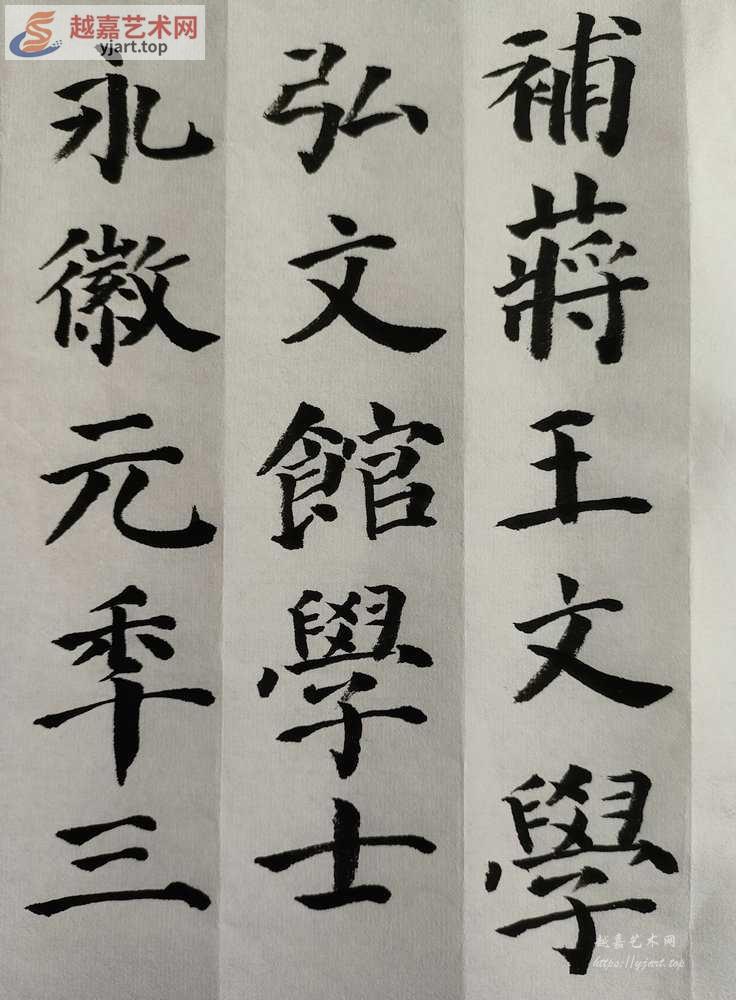 越嘉艺术网
yjart.top
補蔣王文學
弘文館學士
永徽元秊三
越嘉艺术网
https://yjart.top